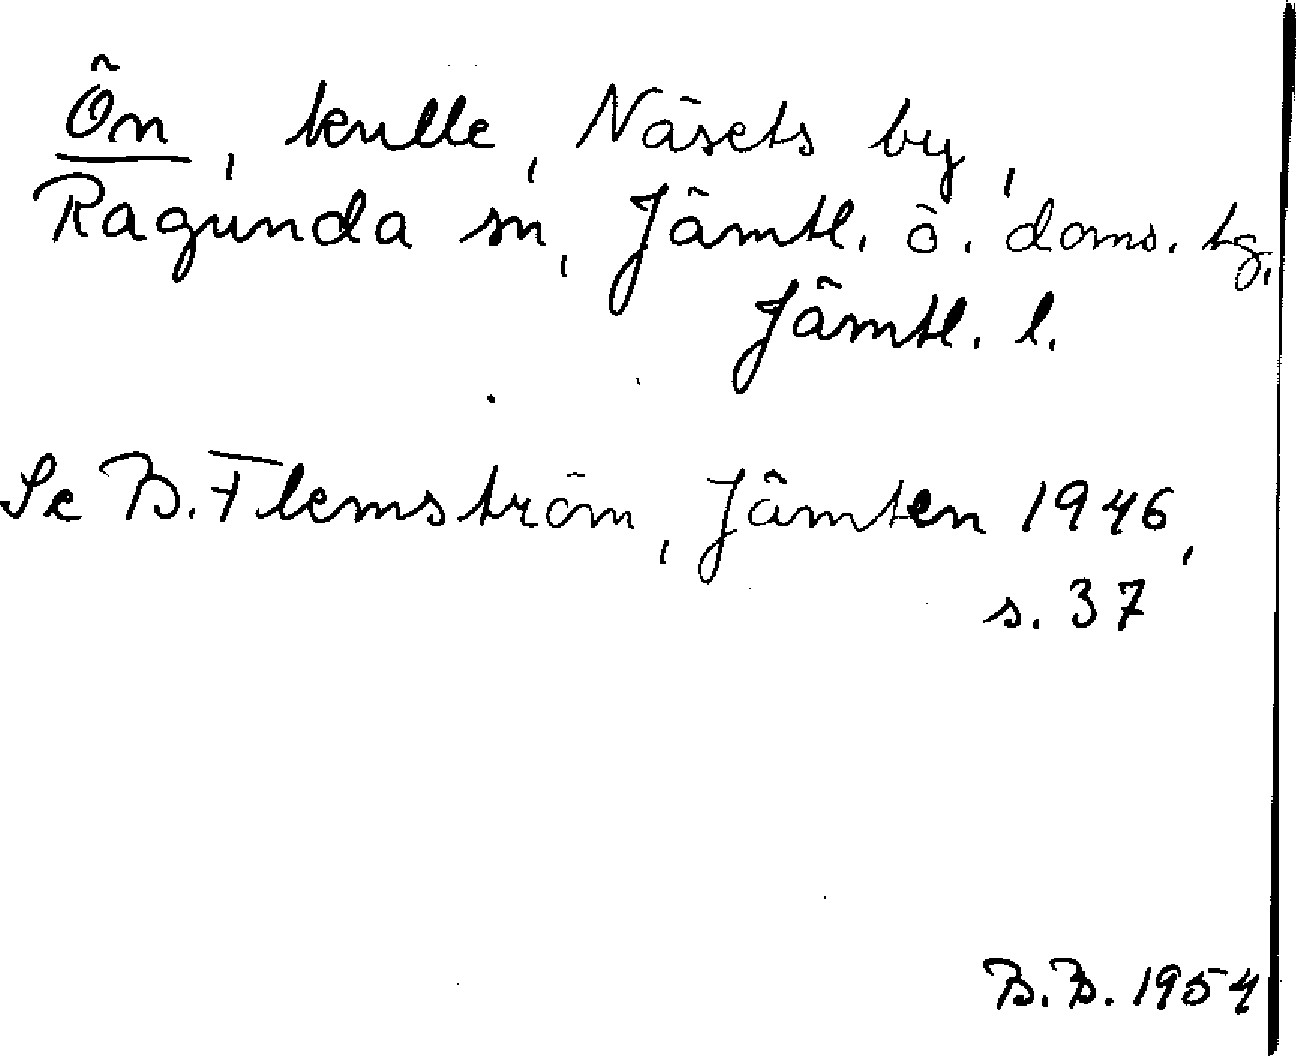 Ön, kulle, Näsets by,
Ragunda sn, Jämtl. ö. doms. tg,
Jämtl. l.
Se B. Flemström, Jämten 1946,
s. 37
B. B. 1954